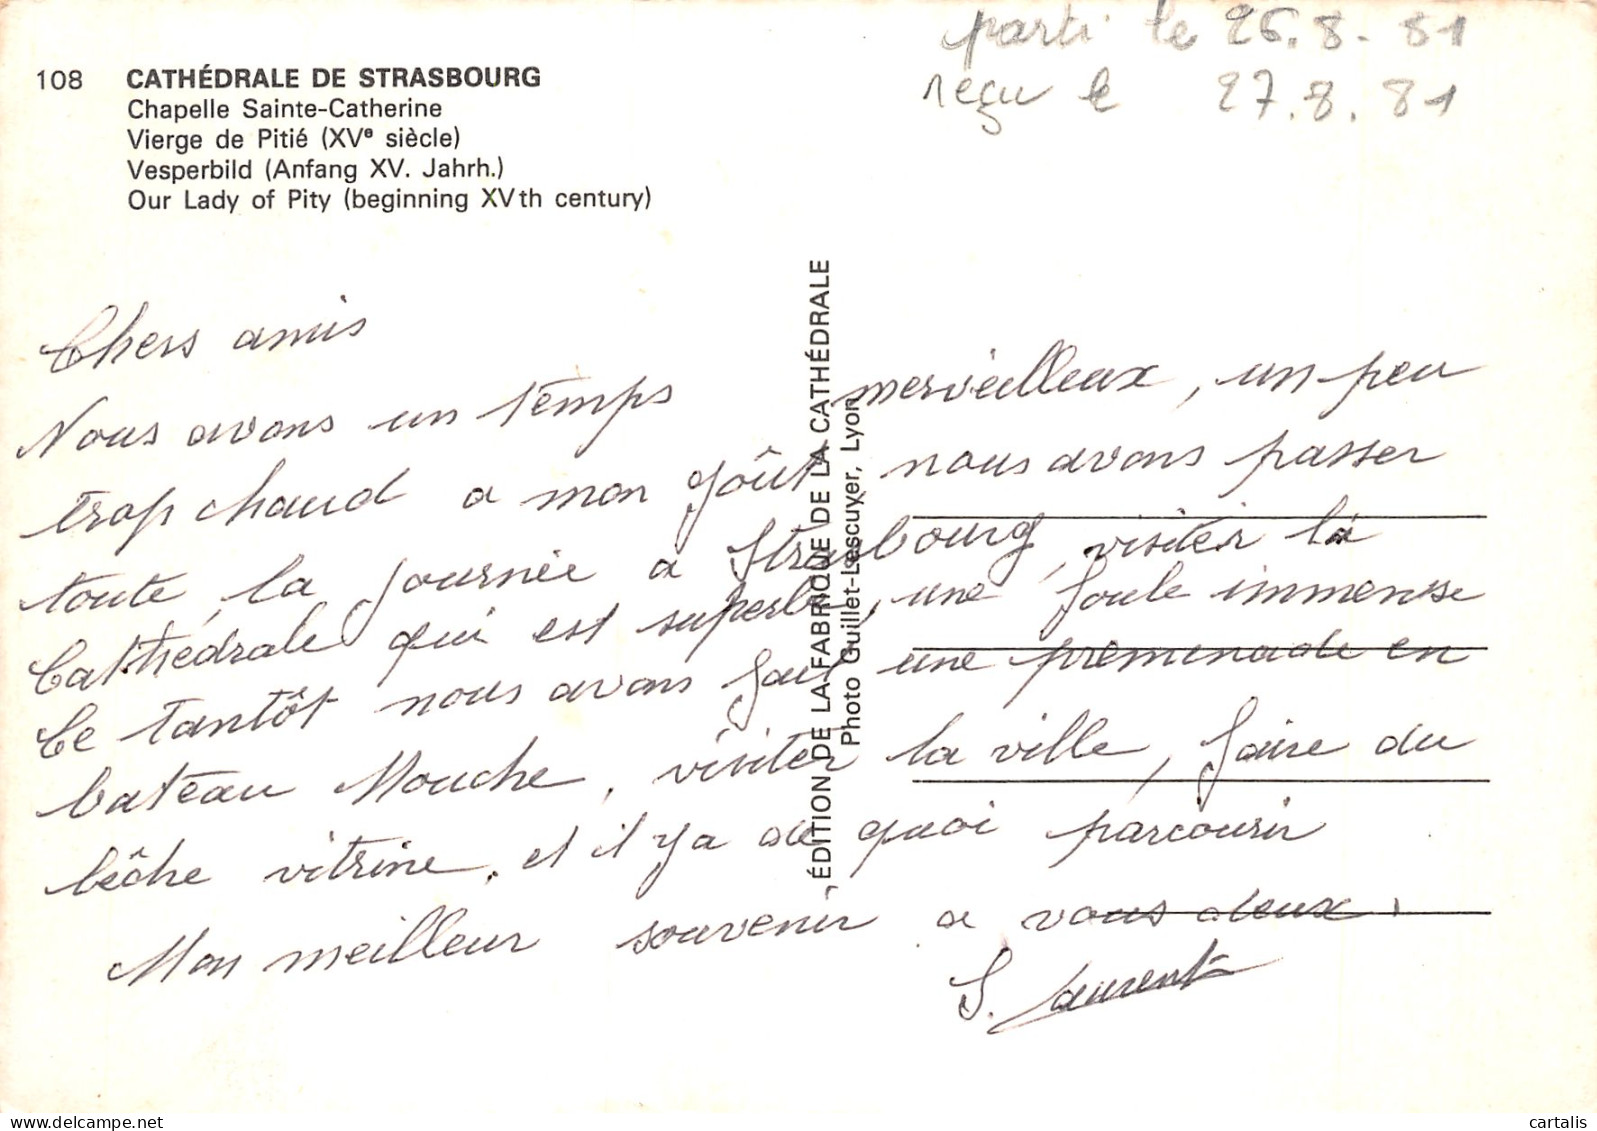 parti le 26.8.81
reçu le 27.8.81
108 CATHÉDRALE DE STRASBOURG
Chapelle Sainte-Catherine
Vierge de Pitié (XVe siècle)
Vesperbild (Anfang XV. Jahrh.)
Our Lady of Pity (beginning XVth century)
Chers amis
Nous avons un temps merveilleux, un peu
trop chaud a mon goût nous avons passer
toute la journée a Strasbourg, visiter la
Cathédrale qui est superbe, une foule immense
Ce tantôt nous avons fait une promenade en
bateau Mouche, visiter la ville, faire du
lêche vitrine, et il y a de quoi parcourir
Mon meilleur souvenir a vous deux.
S. Laurent
ÉDITION DE LA FABRIQUE DE LA CATHÉDRALE
Photo Guillet-Lescuyer, Lyon
cartalis